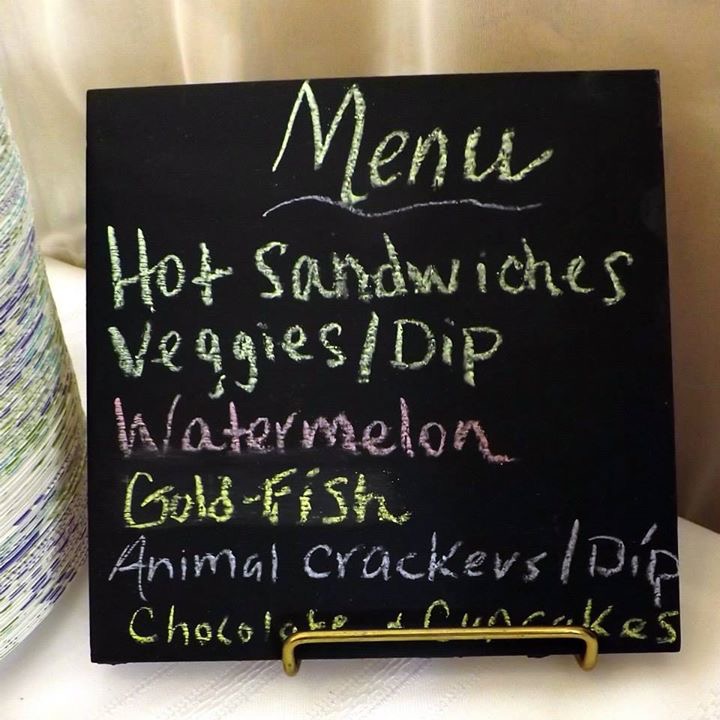 Menu
Hot Sandwiches
Veggies/Dip
Watermelon
Gold-Fish
Animal crackers/Dip
Chocolate & Cupcakes